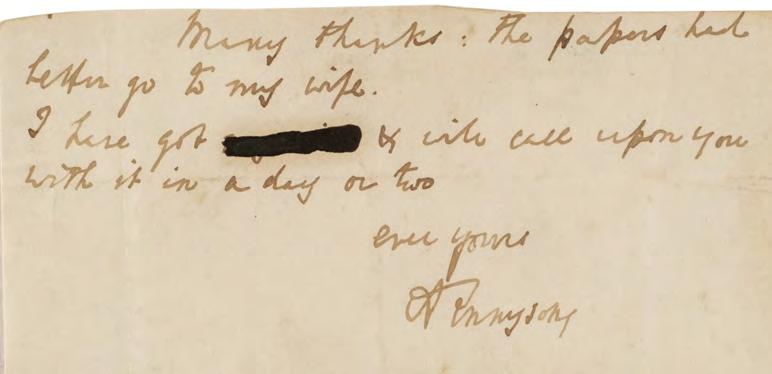 Many thanks: the papers had
better go to my wife.
I have got & will call upon you
with it in a day or two
ever yours
ATennyson